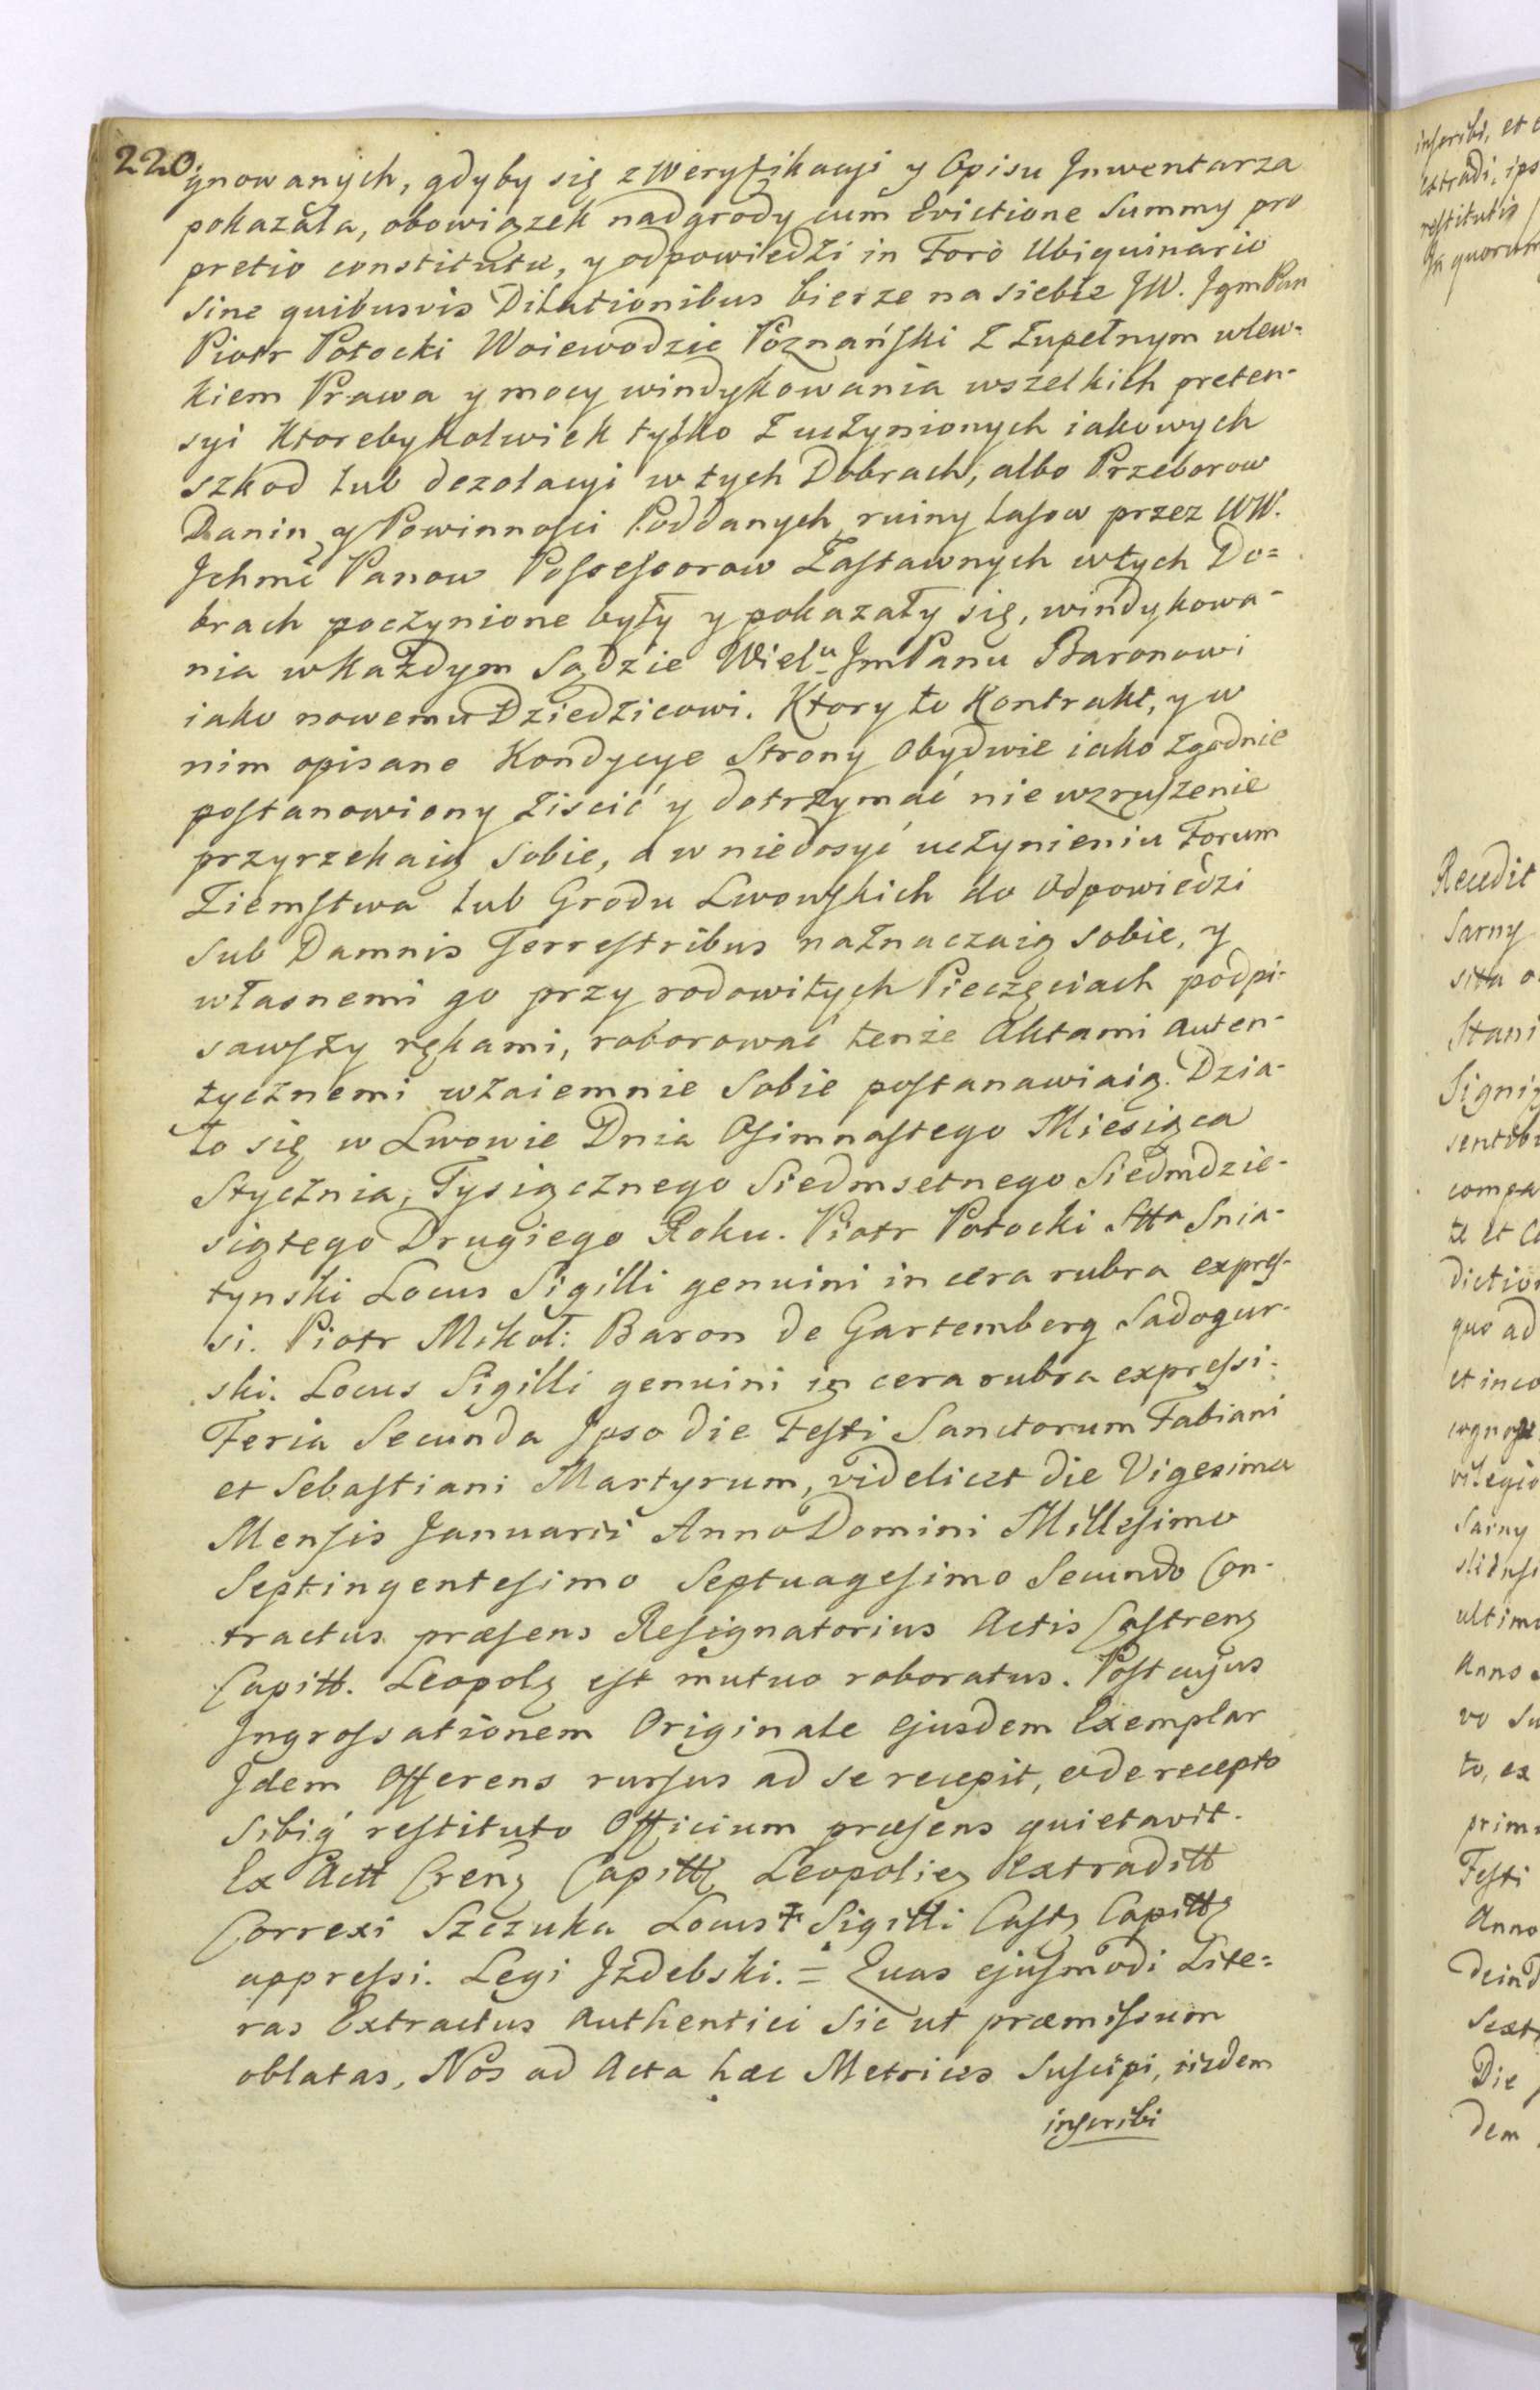 220.
gnowanych, gdyby się z Weryfikacyi y Opisu Jnwentarza
pokazała, obowiązek nadgrody cum Evictione Summy pro
pretio constitutæ, y odpowiedzi in Foro Ubiquinario
sine quibusvis Dilationibus bierze na siebie JW. Jgm Pan
Piotr Potocki Woiewodzic Poznański z zupełnym wlew-
kiem Prawa y mocy windykowania wszelkich preten-
syi Ktorebykolwiek tylko z uczynionych iakowych
szkod lub dezolacyi w tych Dobrach, albo Przeborow
Danin y Powinności Poddanych, ruiny lasow przez WW.
Jchmć Panow Possessorow Zastawnych w tych Do=
brach poczynione były y pokazały się, windykowa-
nia w każdym Sądzie Wielu JmPanu Baronowi
iako nowemu Dziedzicowi. Ktory to Kontrakt, y w
nim opisane Kondycye Strony Obydwie iako zgodnie
postanowiony ziscić y dotrzymać niewzruszenie
przyrzekaią sobie, a w niedosyć uczynieniu Forum
Ziemstwa lub Grodu Lwowskich do Odpowiedzi
sub Damnis Terrestribus naznaczaią sobie, y
własnemi go przy rodowitych Pieczęciach podpi-
sawszy rękami, roborować tenże Aktami auten-
tycznemi wzaiemnie Sobie postanawiaią. Dzia-
ło się w Lwowie Dnia Osimnastego Miesiąca
Stycznia, Tysiącznego Siedmsetnego Siedmdzie-
siątego Drugiego Roku. Piotr Potocki Stta Snia-
tynski Locus Sigilli genuini in cera rubra expres-
si. Piotr Mikoł: Baron de Gartemberg Sadogur-
ski. Locus Sigilli genuini in cera rubra expressi.
Feria Secunda Jpso die Festi Sanctorum Fabiani
et Sebastiani Martyrum, videlicet die Vigesima
Mensis Januarii Anno Domini Millesimo
Septingentesimo Septuagesimo Secundo Con-
tractus præsens Resignatorius Actis Castrenz
Capitt. Leopolz est mutuo roboratus. Post cujus
Jngrossationem Originale ejusdem Exemplar
Jdem Offerens rursus ad se recepit, et de recepto
Sibiq́ restituto Officium præsens quietavit.
Ex Actt Crenz Capittz Leopoliez Extraditt
Correxi Szczuka Locus Sigilli Castz Capittz
appressi. Legi Jzdebski. = Quas ejusmodi Lite=
ras Extractus Authentici Sic ut præmissum
oblatas, Nos ad Acta hæc Metrices Suscipi, iisdem
inscribi
inscribi, et
extradi, ips
restitutis
Jn quorum
Recedit
Sarny
Stani
compa
dictio
quo ad
et inco
Sarny
ultim
Anno
vo Su
to, ex
prim
Festi
Anno
Deind
Sext
Die
dem